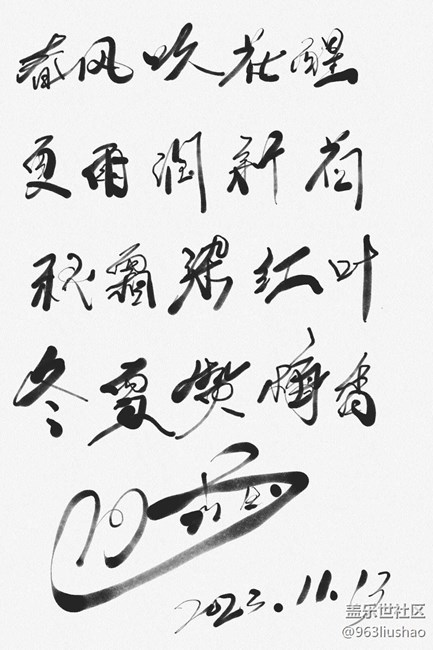 春风吹花醒
夏雨润新荷
秋霜染红叶
冬雪赞梅香
2023.11.13
盖乐世社区
@963liushao